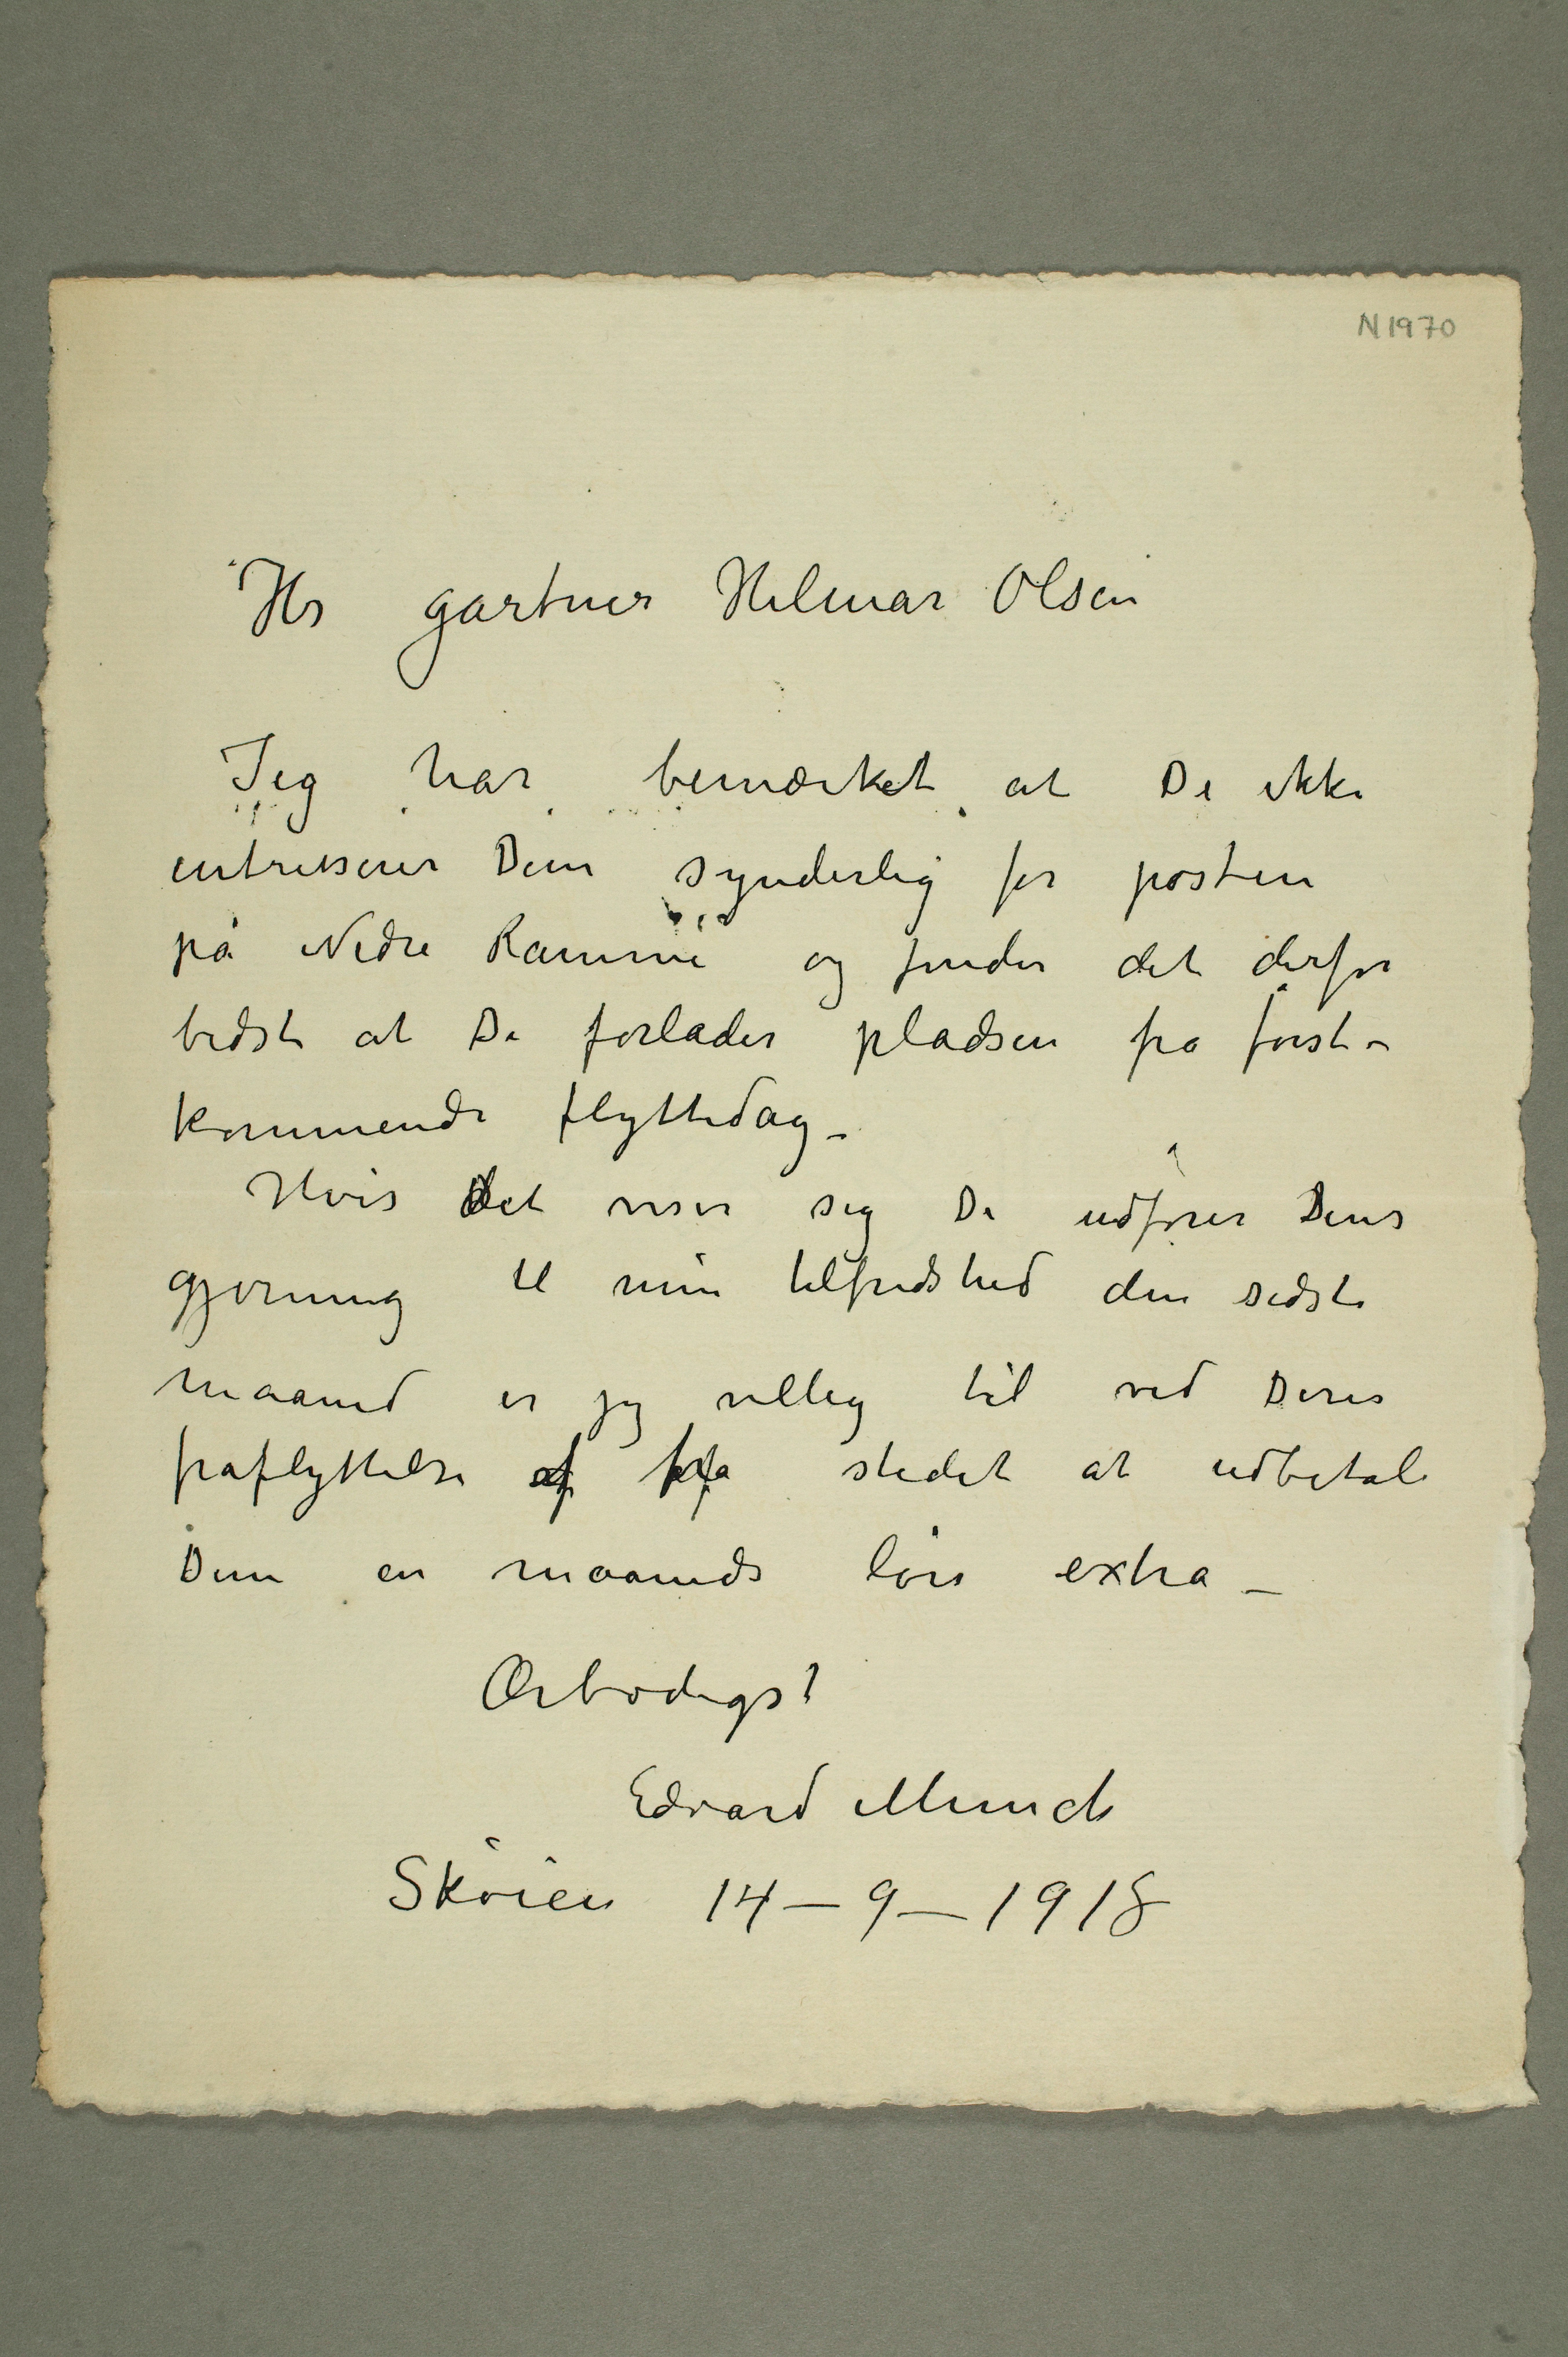 N 1970
Hr gartner Hilmar Olsen
Jeg har bemærket at De ikke
intresserer Dem synderlig for posten
på Nedre Ramme og finder det derfor
bedst at De forlader pladsen fra först-
kommende flyttedag –
Hvis det viser sig De udfører Deres
gjerning til min tilfredshed den sidste
maaned er jeg villig til ved Deres
fraflyttelse af fra stedet at udbetale
Dem en maaneds løn extra –
Ærbødigst
Edvard Munch
Skøien 14–9–1918